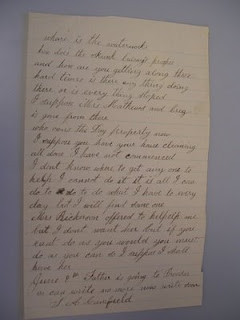 where is the
how does the
and how are you getting along these
hard times is there any thing doing
there or is every thing stoped
I suppose Mrs Mathews and
is gone from there
who owns the Day property now
I suppose you have your house cleaning
all done I have not commenced
I dont know where to get any one to
help I cannot do it it is all I can
do to do to do what I have to every
day but I will find some one
Mrs Rickroom offered to help me
but I dont want her but if you
cant do as you would you must
do as you can so I suppose I shall
have her
June 9th is going to
so can write no more now write soon